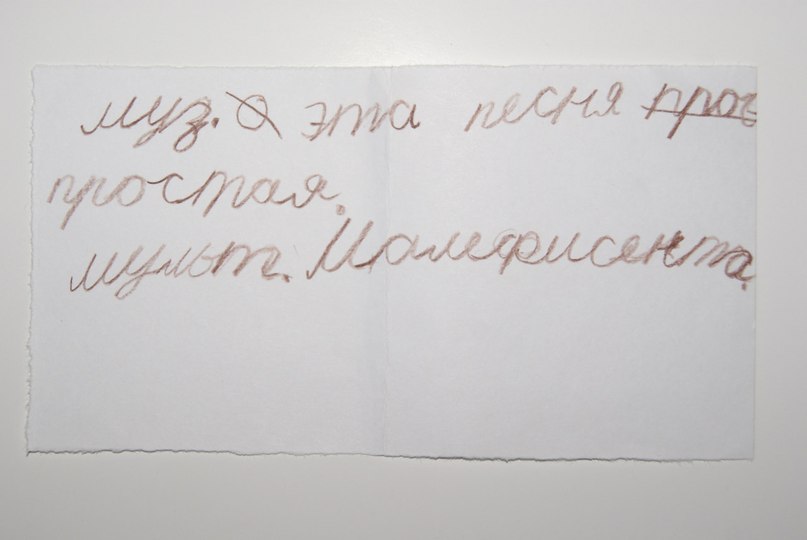 муз. эта песня прос
простая.
мульт. Малефисента.